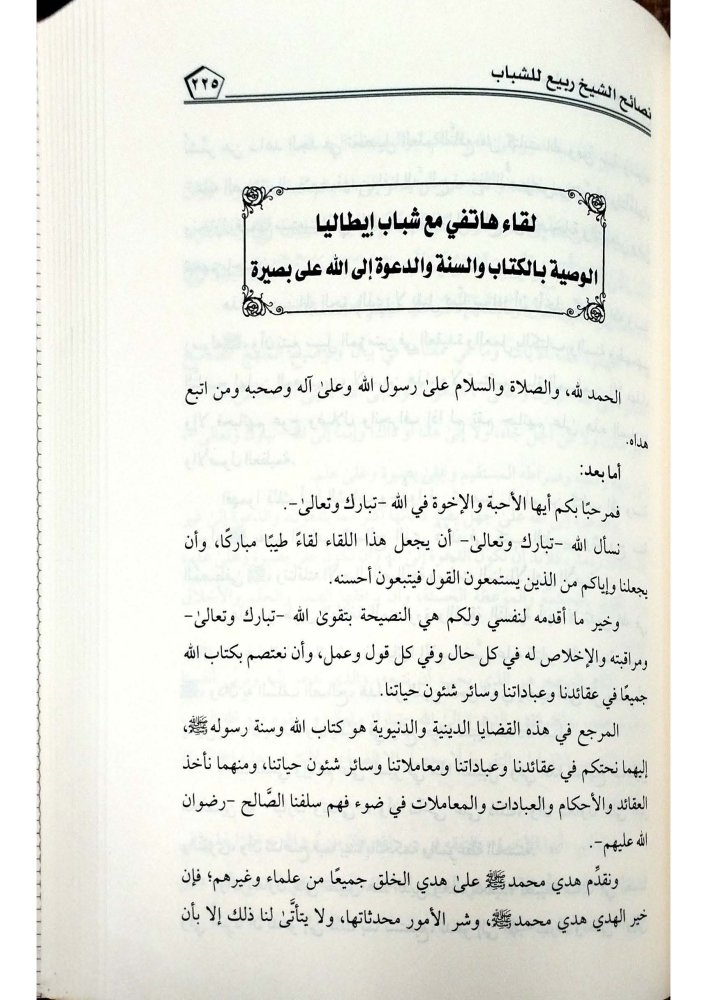 نصائح الشيخ ربيع للشباب
٢٢٥
لقاء هاتفي مع شباب إيطاليا
الوصية بالكتاب والسنة والدعوة إلى الله على بصيرة
الحمد لله، والصلاة والسلام علىٰ رسول الله وعلىٰ آله وصحبه ومن اتبع
هداه.
أما بعد:
فمرحبًا بكم أيها الأحبة والإخوة في الله -تبارك وتعالىٰ-.
نسأل الله -تبارك وتعالىٰ- أن يجعل هذا اللقاء لقاءً طيبًا مباركًا، وأن
يجعلنا وإياكم من الذين يستمعون القول فيتبعون أحسنه.
وخير ما أقدمه لنفسي ولكم هي النصيحة بتقوىٰ الله -تبارك وتعالىٰ-
ومراقبته والإخلاص له في كل حال وفي كل قول وعمل، وأن نعتصم بكتاب الله
جميعًا في عقائدنا وعباداتنا وسائر شئون حياتنا.
المرجع في هذه القضايا الدينية والدنيوية هو كتاب الله وسنة رسوله ﷺ،
إليهما نحتكم في عقائدنا وعباداتنا ومعاملاتنا وسائر شئون حياتنا، ومنهما نأخذ
العقائد والأحكام والعبادات والمعاملات في ضوء فهم سلفنا الصَّالح -رضوان
الله عليهم-.
ونقدِّم هدي محمد ﷺ علىٰ هدي الخلق جميعًا من علماء وغيرهم؛ فإن
خير الهدي هدي محمد ﷺ، وشر الأمور محدثاتها، ولا يتأتَّىٰ لنا ذلك إلا بأن